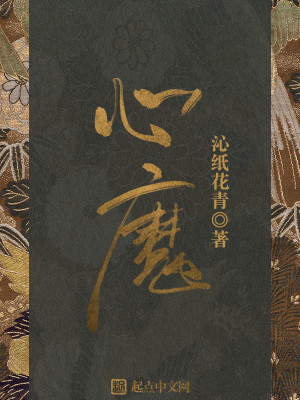 心魔
沁纸花青◎著
起点中文网